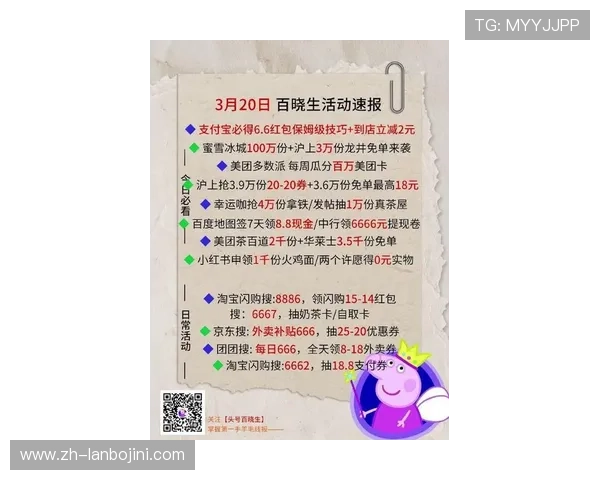 TG: MYYJJPP
3月20日 百晓生活动速报
支付宝必得6.6红包保姆级技巧+到店立减2元
蜜雪冰城100万份+沪上3万份龙井免单来袭
美团多数派 每周瓜分百万美团卡
沪上抢3.9万份20-20券+3.6万份免单最高18元
幸运咖抢4万份拿铁/发帖抽1万份真茶屋
百度地图签7天领8.8现金/中行领6666元提现卷
美团茶百道2千份+华莱士3.5千份免单
小红书申领1千份火鸡面/两个许愿得0元实物
今日必看
淘宝闪购搜:8886，领闪购15-14红包
搜：6667，抽奶茶卡/自取卡
京东搜: 外卖补贴666，抽25-20优惠券
团团搜: 每日666，全天领8-18外卖券
淘宝闪购搜:6662，抽18.8支付券
日常活动
关注【头号百晓生】
掌握第一手羊毛线报
www.zh-lanbojini.com